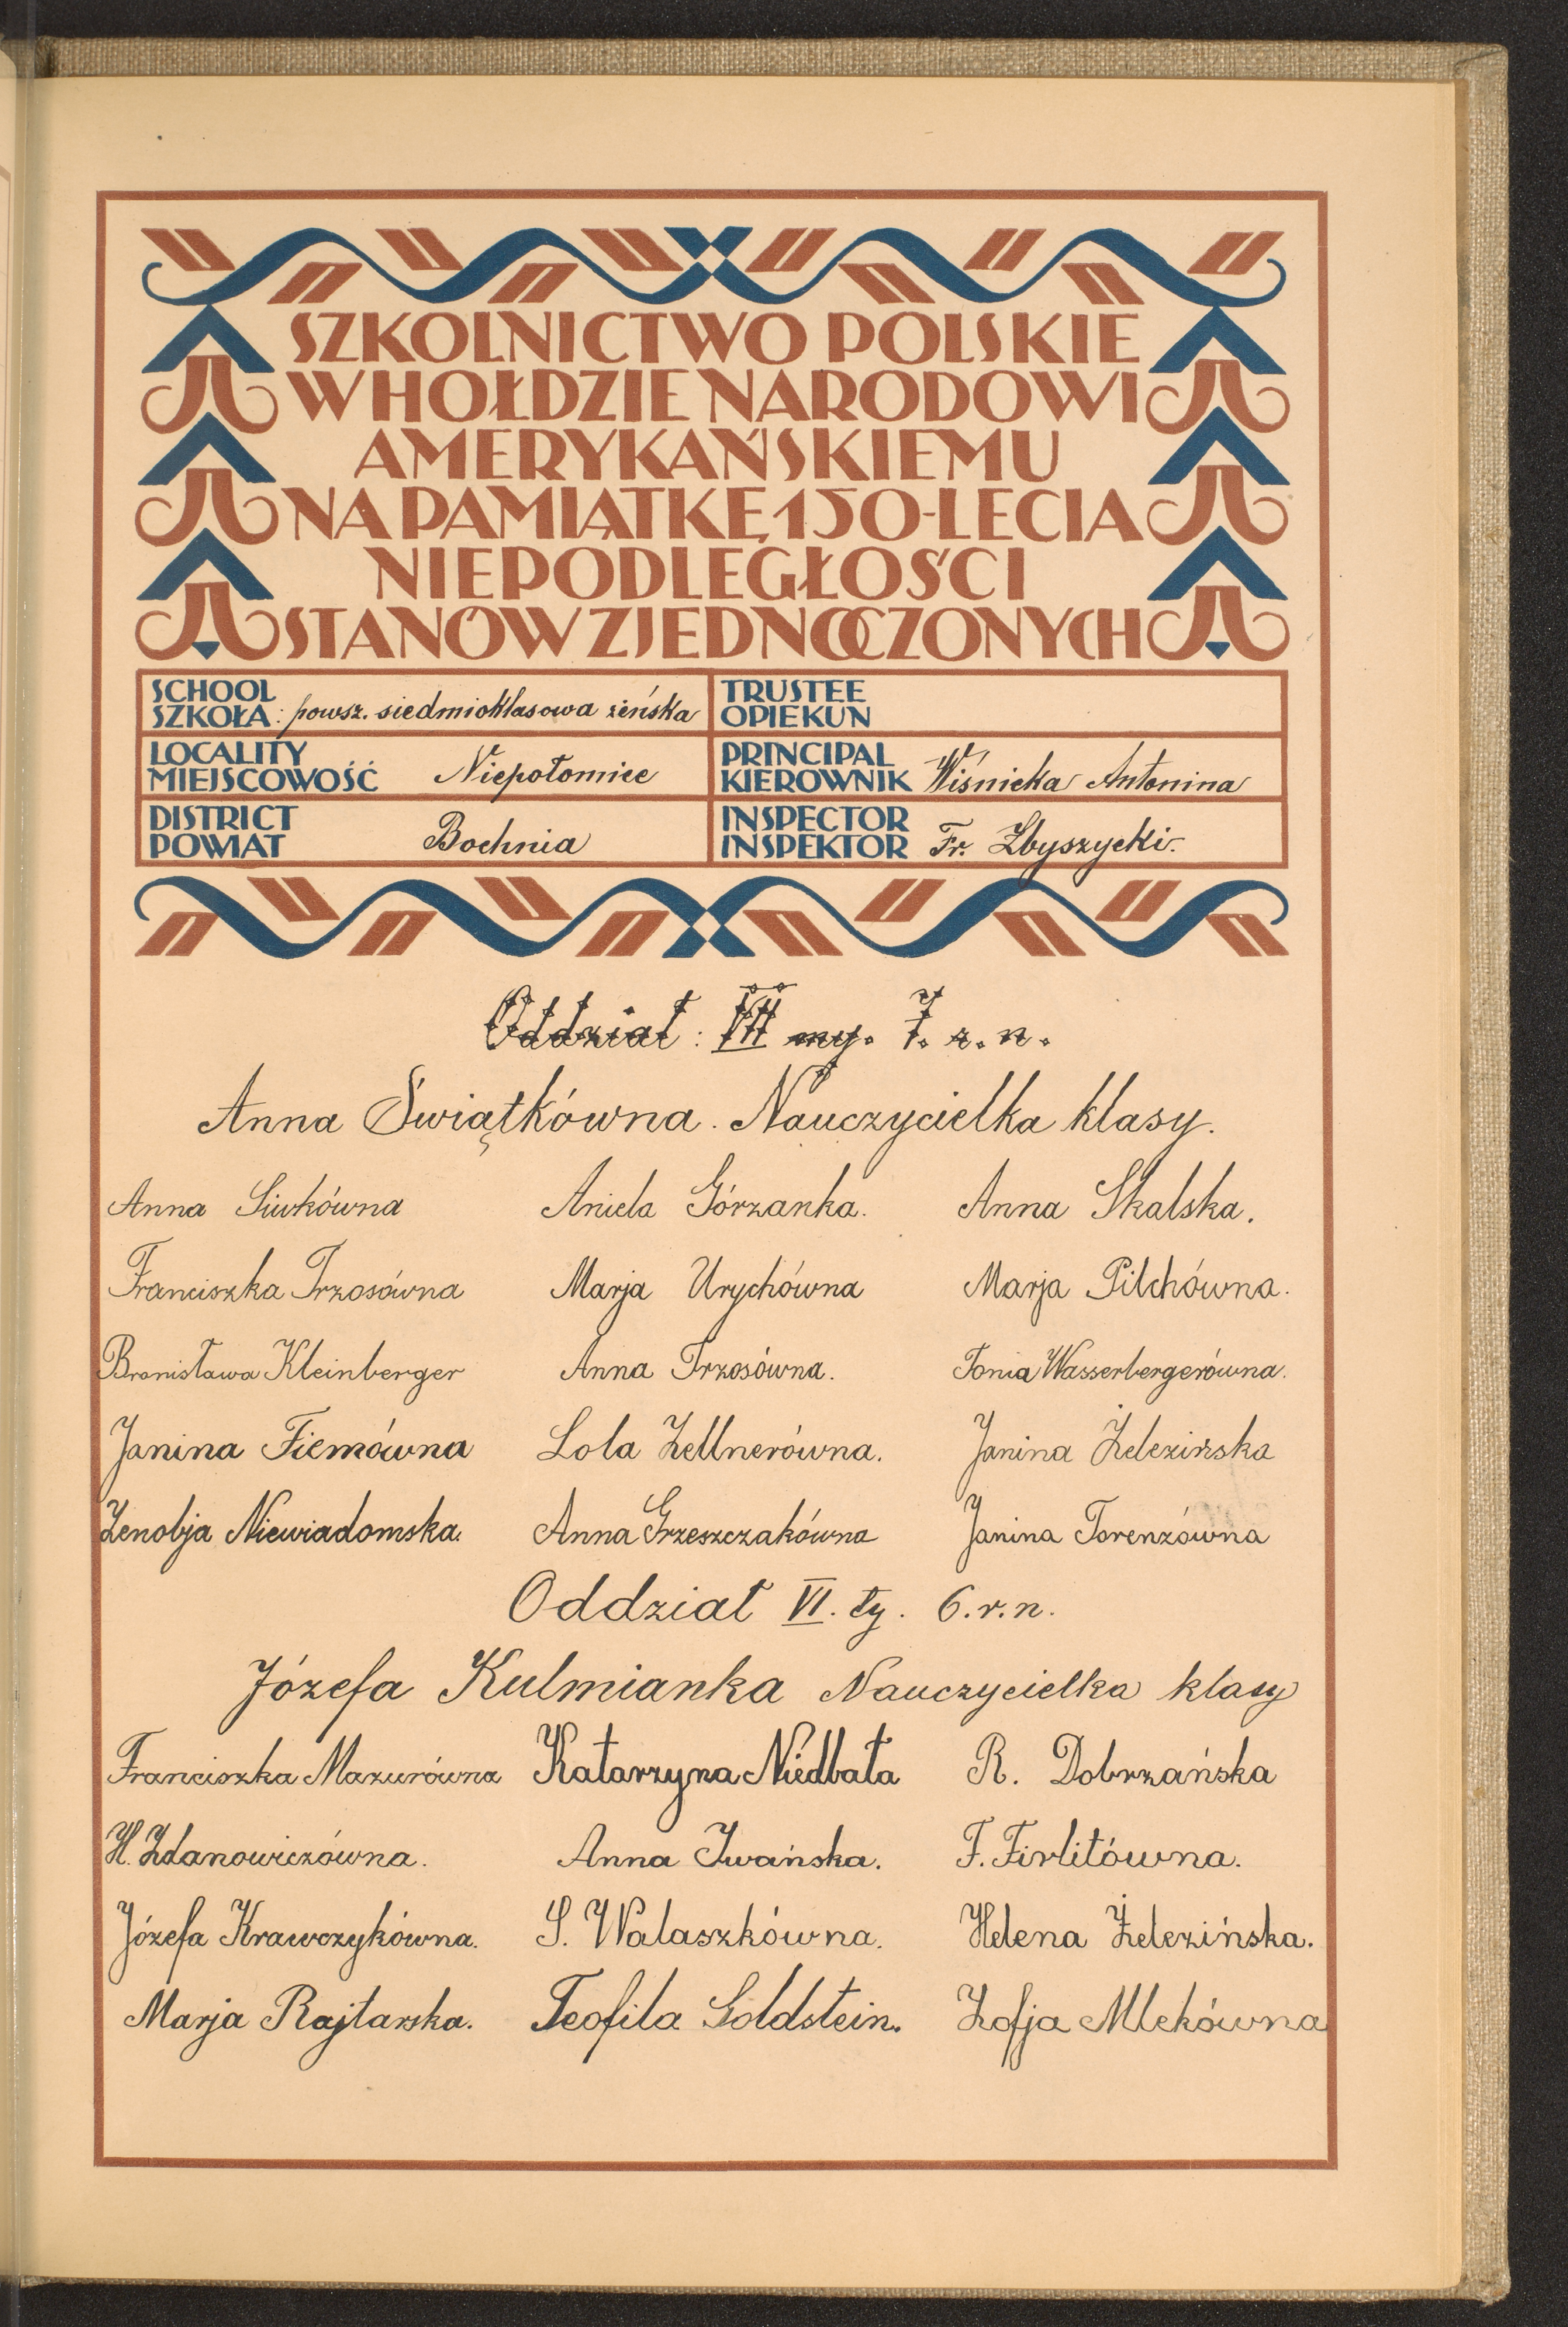 SZKOLNICTWO POLSKIE
W HOŁDZIE NARODOWI
AMERYKAŃSKIEMU
NA PAMIĄTKĘ 150-LECIA
NIEPODLEGŁOŚCI
STANÓW ZJEDNOCZONYCH
SCHOOL
SZKOŁA: powsz. siedmioklasowa żeńska
TRUSTEE
OPIEKUN
LOCALITY
MIEJSCOWOŚĆ Niepołomice
PRINCIPAL
KIEROWNIK Wiśnicka Antonina
DISTRICT
POWIAT Bochnia
INSPECTOR
INSPEKTOR Fr. Zbyszycki.
Oddział: VII my. 7. r. n.
Anna Świątkówna. Nauczycielka klasy.
Anna Siwkówna Aniela Górzanka. Anna Skalska.
Franciszka Trzosówna Marja Urychówna Marja Pilchówna.
Bronisława Kleinberger Anna Trzosówna. Tonia Wasserbergerówna.
Janina Fiemówna Lola Zellnerówna. Janina Żelezińska
Zenobja Niewiadomska. Anna Grzeszczakówna Janina Torenzówna
Oddział VI. ty. 6. r. n.
Józefa Kulmianka Nauczycielka klasy
Franciszka Mazurówna Katarzyna Niedbała R. Dobrzańska
H. Zdanowiczówna. Anna Iwańska. F. Firlitówna.
Józefa Krawczykówna. S. Walaszkówna. Helena Żelezińska.
Marja Rajtarska. Teofila Goldstein. Zofja Mlekówna